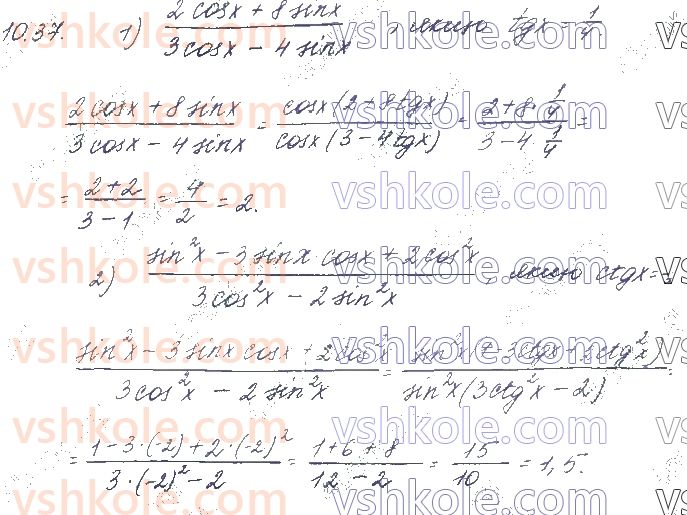 10.37. 1) (2cosx + 8sinx)/(3cosx - 4sinx), якщо tgx = 1/4
(2cosx + 8sinx)/(3cosx - 4sinx) = cosx(2 + 8tgx)/cosx(3 - 4tgx) = (2 + 8·1/4)/(3 - 4·1/4) =
= (2+2)/(3-1) = 4/2 = 2.
2) (sin²x - 3sinx cosx + 2cos²x)/(3cos²x - 2sin²x), якщо ctgx =
(sin²x - 3sinx cosx + 2cos²x)/(3cos²x - 2sin²x) = sin²x(1 - 3ctgx + 2ctg²x)/sin²x(3ctg²x - 2) =
= (1 - 3·(-2) + 2·(-2)²)/(3·(-2)² - 2) = (1 + 6 + 8)/(12 - 2) = 15/10 = 1,5.
vshkole.com